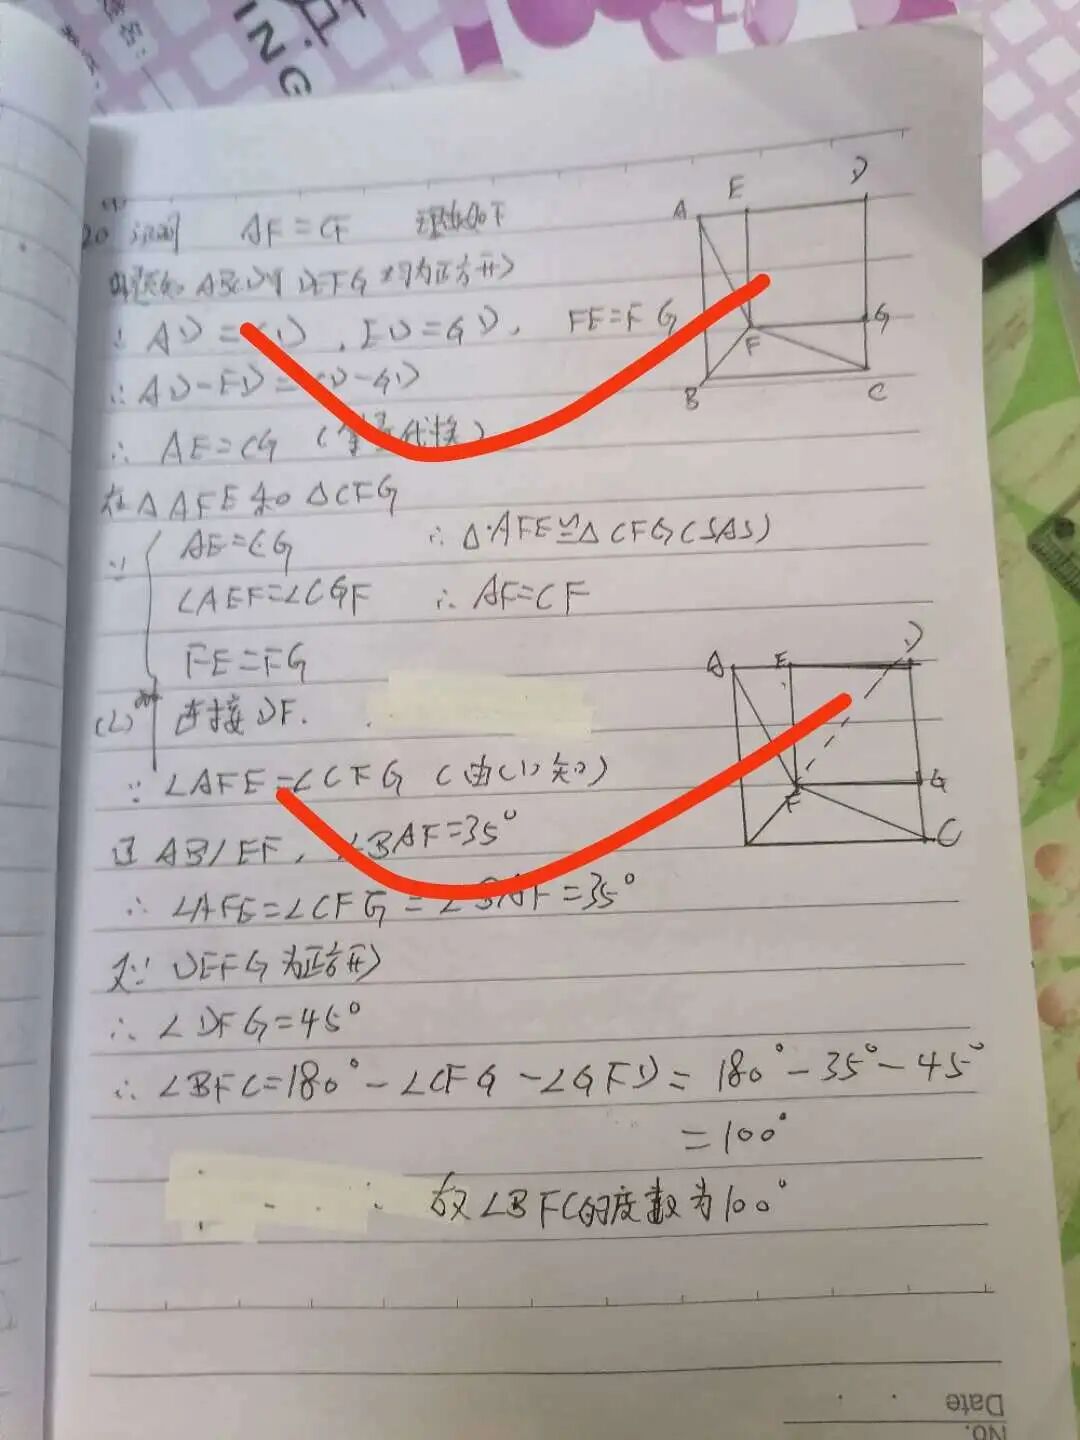 ING
20 证明 AF=CF 理由如下
ABCD DEFG 均为正方形
∵ AD=CD, ED=GD, FE=FG
∴ AD-ED=CD-GD
∴ AE=CG (等量代换)
在△AFE和△CFG
∵ AE=CG ∴ △AFE≌△CFG(SAS)
∠AEF=∠CGF ∴ AF=CF
FE=FG
A E D
F G
B C
(2) 连接DF.
∵ ∠AFE=∠CFG (由(1)知)
且 AB//EF, ∠BAF=35°
∴ ∠AFE=∠CFG=∠BAF=35°
又∵ DEFG为正方形
∴ ∠DFG=45°
∴ ∠BFC=180°-∠CFG-∠GFD=180°-35°-45°
=100°
故∠BFC的度数为100°
A E D
F G
C
No.
Date